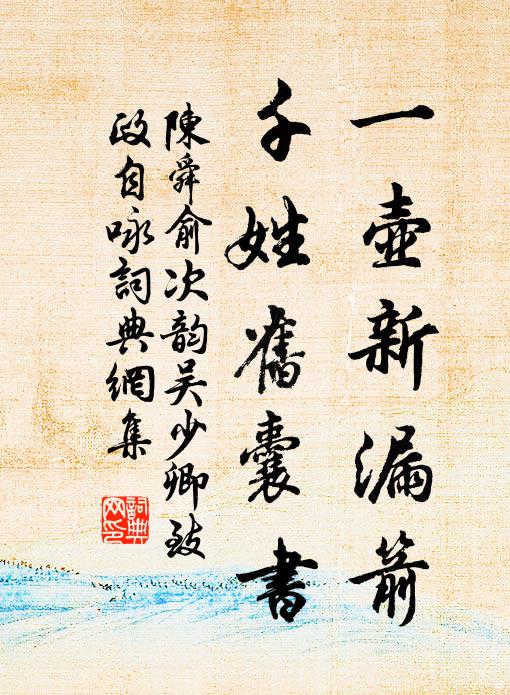 一壺新漏箭
千姓舊囊書
陳舜俞次韵吴少卿致
政自咏詞典網集
詞典网印